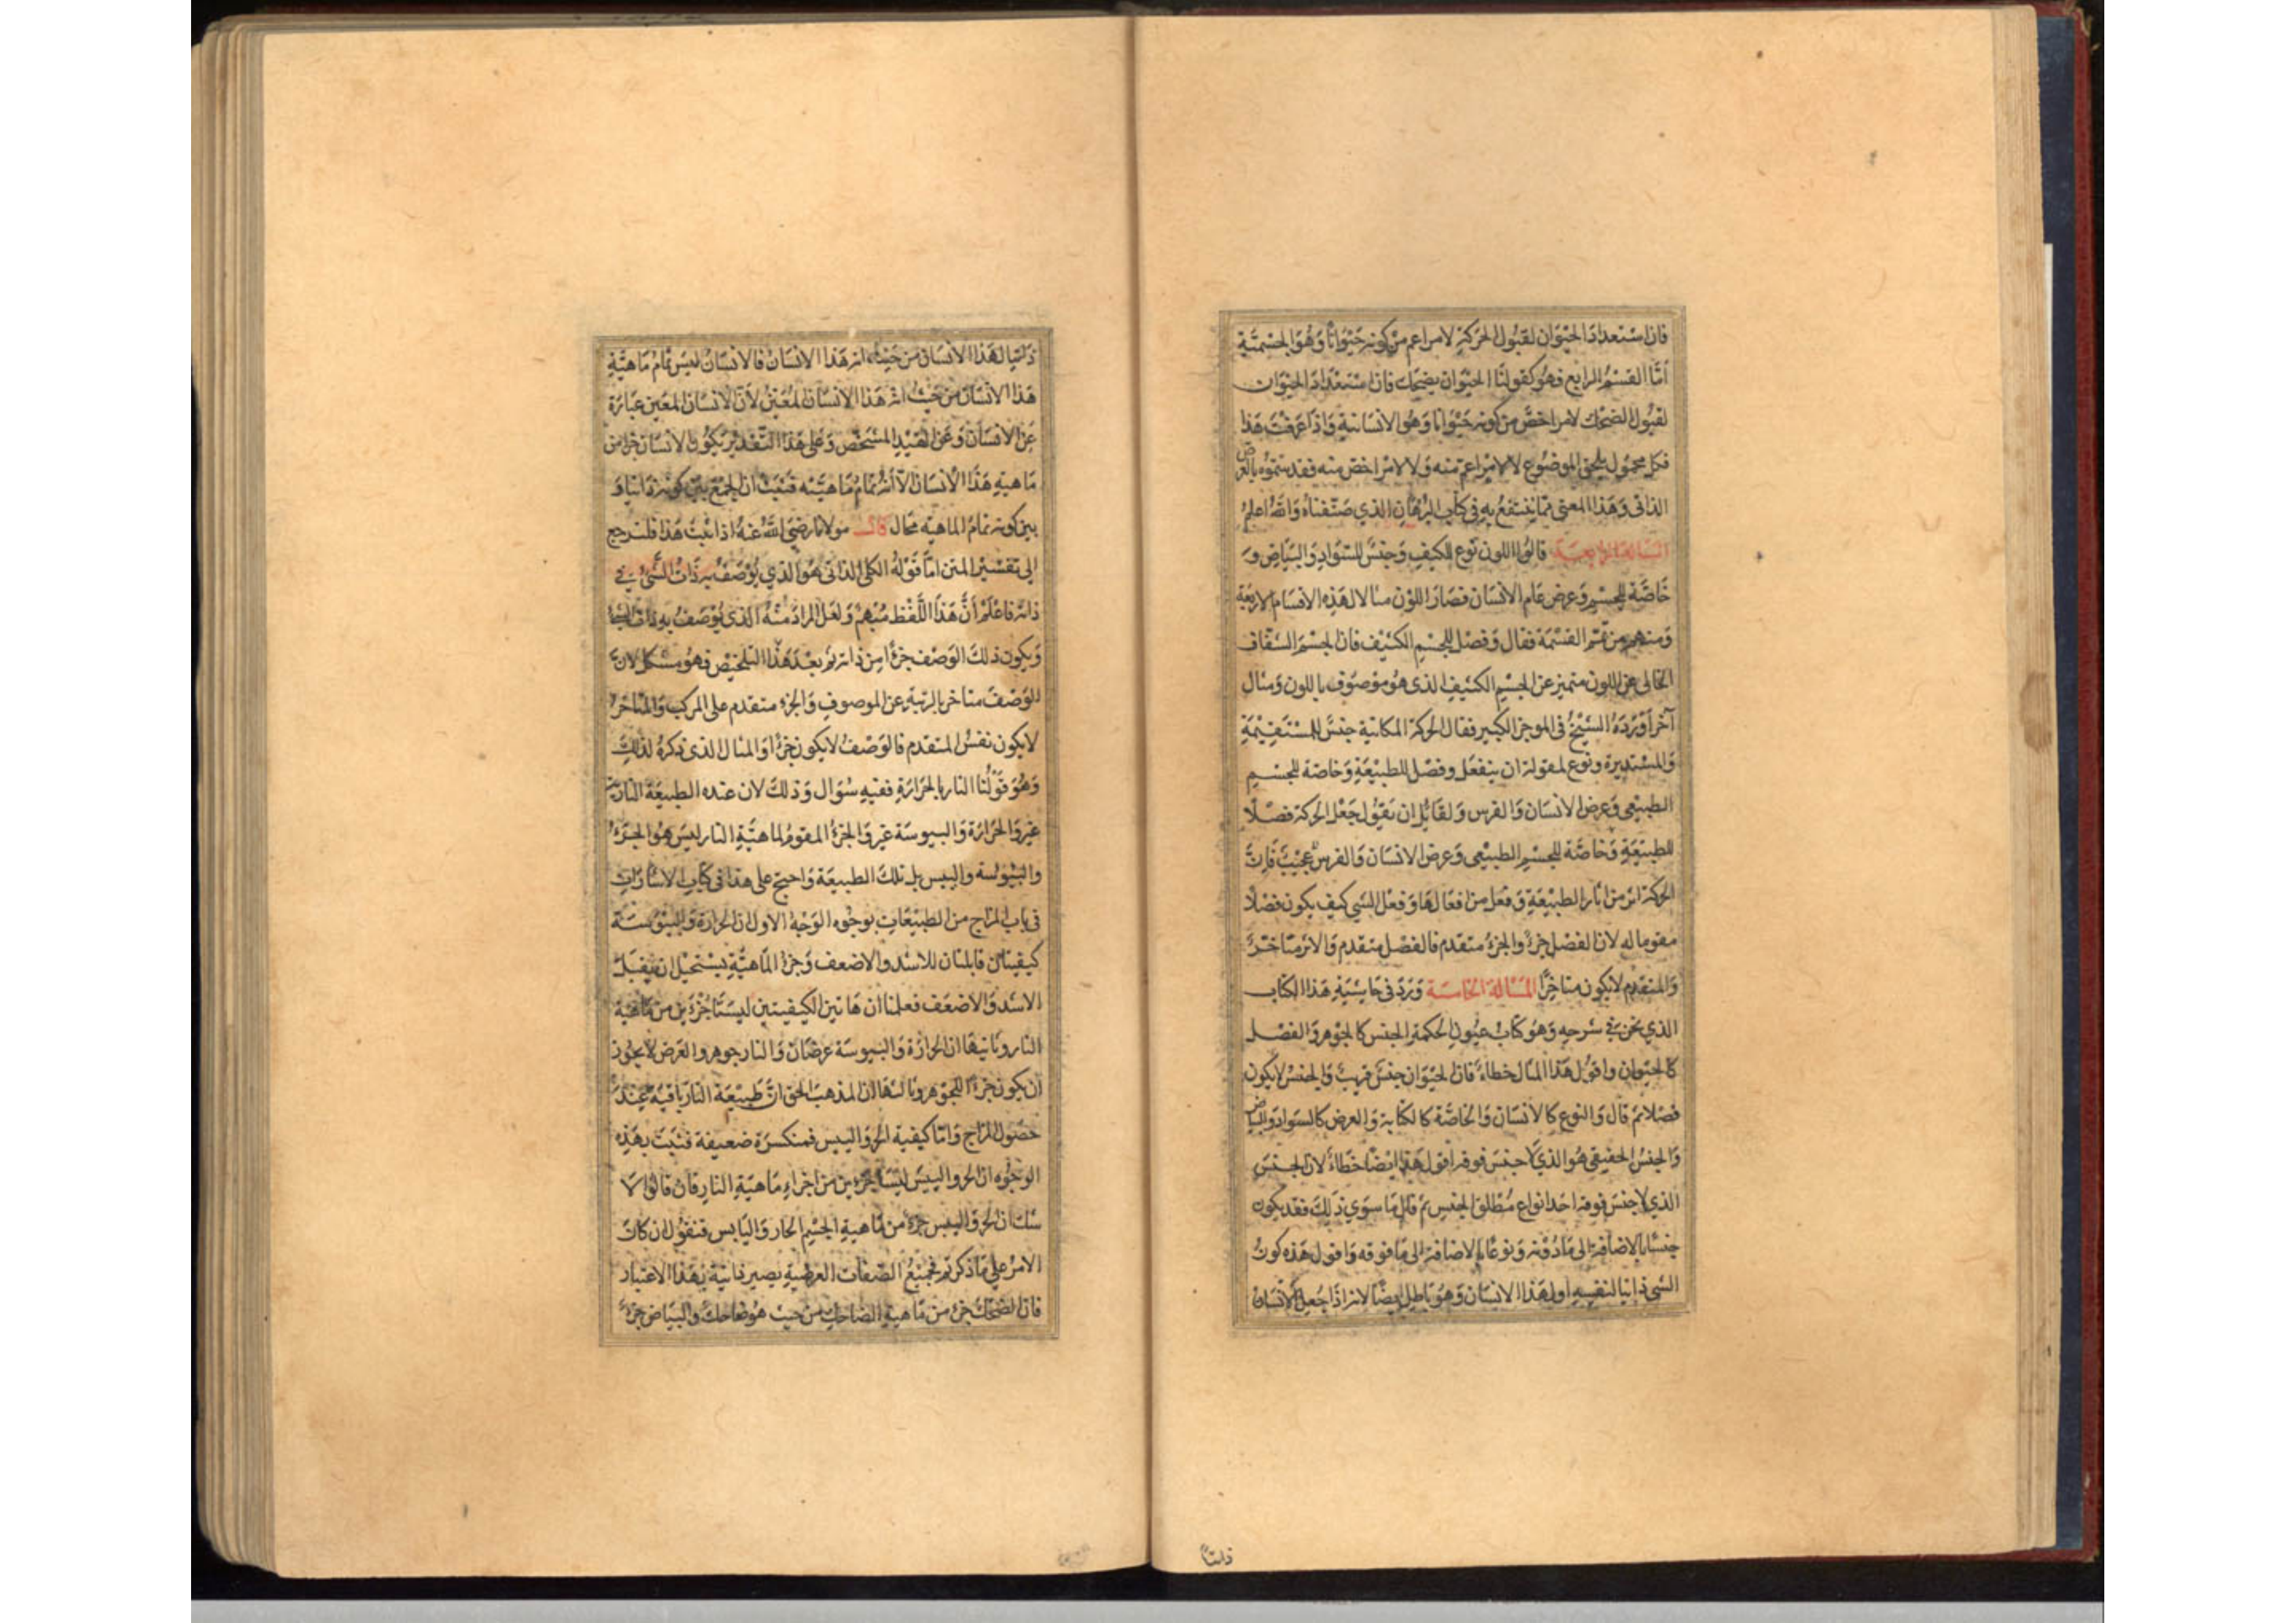 فان استعداد الحيوان لقبول الحركة لامر اعم من كونه حيوانا وهو الجسمية
امّا القسم الرابع فهو كقولنا الحيوان يضحك فان استعداد الحيوان
لقبول الضحك لامر اخصّ من كونه حيوانا وهو الانسانية واذا عرفت هذا
فكل محمول يلحق الموضوع لا لامر اعمّ منه ولا لامر اخصّ منه فقد سمّوه بالعرض
الذاتى وهذا المعنى ممّا ينتفع به فى كتاب البرهان الذي صنّفناه والله اعلم
المسالة الرابعة قالوا اللون نوع للكيف وجنس للسواد والبياض و
خاصّة للجسم وعرض عام الانسان فصار اللون مثالا لهذه الاقسام الاربعة
ومنهم من تمّم القسمة فقال وفصل للجسم الكثيف فان الجسم الشفاف
الخالى عن اللون متميز عن الجسم الكثيف الذى هو موصوف باللون ومثال
آخر اورده الشيخ فى الموجز الكبير فقال الحركة المكانية جنس للمستقيمة
والمستديرة ونوع لمقولة ان ينفعل وفصل للطبيعة وخاصة للجسم
الطبيعى وعرض الانسان والفرس ولقائل ان يقول جعل الحركة فصلا
للطبيعة وخاصّة للجسم الطبيعى وعرض الانسان والفرس عجيب فان
الحركة اثر من اثار الطبيعة وفعل من افعالها وفعل الشي كيف يكون فصلا
مقوما له لان الفصل جزء والجزء متقدم فالفصل متقدم والاثر متاخر
والمتقدم لا يكون متاخرا المسالة الخامسة ورد فى حاشية هذا الكتاب
الذي نحن فى شرحه وهو كتاب عيون الحكمة الجنس كالجوهر والفصل
كالحيوان واقول هذا المثال خطاء فان الحيوان جنس قريب والجنس لا يكون
فصلا ثم قال والنوع كالانسان والخاصّة كالكتابة والعرض كالسواد والبياض
والجنس الحقيقى هو الذي لا جنس فوقه اقول هذا ايضا خطاء لان الجنس
الذي لا جنس فوقه احد انواع مطلق الجنس ثم قال ما سوي ذلك فقد يكون
جنسا بالاضافة الى ما دونه ونوعا بالاضافة الى ما فوقه واقول هذه كون
الشي ذاتيا لنفسه اولهذا الانسان وهو باطل ايضا لانه اذا جعل الانسان
ذاتيا
ذاتيا لهذا الانسان من حيث انه هذا الانسان فالانسان ليس تمام ماهية
هذا الانسان من حيث انه هذا الانسان المعين لان الانسان المعين عبارة
عن الانسان وعن القيد المشخص وعلى هذا التقدير يكون الانسان جزء من
ماهية هذا الانسان لا انه تمام ماهيته فثبت ان الجمع بين كونه ذاتيا و
بين كونه تمام الماهية محال قال مولانا رضى الله عنه اذا ثبت هذا فلنرجع
الى تفسير المتن امّا قوله الكلى الذاتى هو الذي يوصف به ذات الشئ في
ذاته فاعلم أنّ هذا اللفظ مبهم ولعل المراد منه الذى يوصف به ذات الشئ
ويكون ذلك الوصف جزءا من ذاته ثم بعد هذا التلخيص فهو مشكل لان
الوصف متاخر بالرتبة عن الموصوف والجزء متقدم على المركب والمتاخر
لا يكون نفس المتقدم فالوصف لا يكون جزءا والمثال الذى ذكره لذلك
وهو قولنا النار بالحرارة ففيه سؤال وذلك لان عنده الطبيعة النارية
غير والحرارة واليبوسة غير والجزء المقوم لماهية النار ليس هو الجزء
واليبوسة واليبس بل تلك الطبيعة واحتج على هذا فى كتاب الاشارات
فى باب المزاج من الطبيعات بوجوه الوجه الاول ان الحرارة واليبوسة
كيفيتان قابلتان للاشد والاضعف وجزء الماهية يستحيل ان يقبل
الاشد والاضعف فعلمنا ان هاتين الكيفيتين ليستا جزءين من ماهية
النار وثانيها ان الحرارة واليبوسة عرضان والنار جوهر والعرض لا يجوز
ان يكون جزءا للجوهر وثالثها ان المذهب الحق انّ طبيعة النار باقية عند
حصول المزاج وامّا كيفية الحر واليبس فمنكسرة ضعيفة فثبت بهذه
الوجوه ان الحر واليبس ليسا جزءين من اجزاء ماهية النار فان قالوا لا
شك ان الحر واليبس جزء من ماهية الجسم الحار واليابس فنقول ان كان
الامر على ما ذكرتم فجميع الصفات العرضية يصير ذاتية بهذا الاعتبار
فان الضحك جزء من ماهية الضاحك من حيث هو ضاحك والبياض جزء